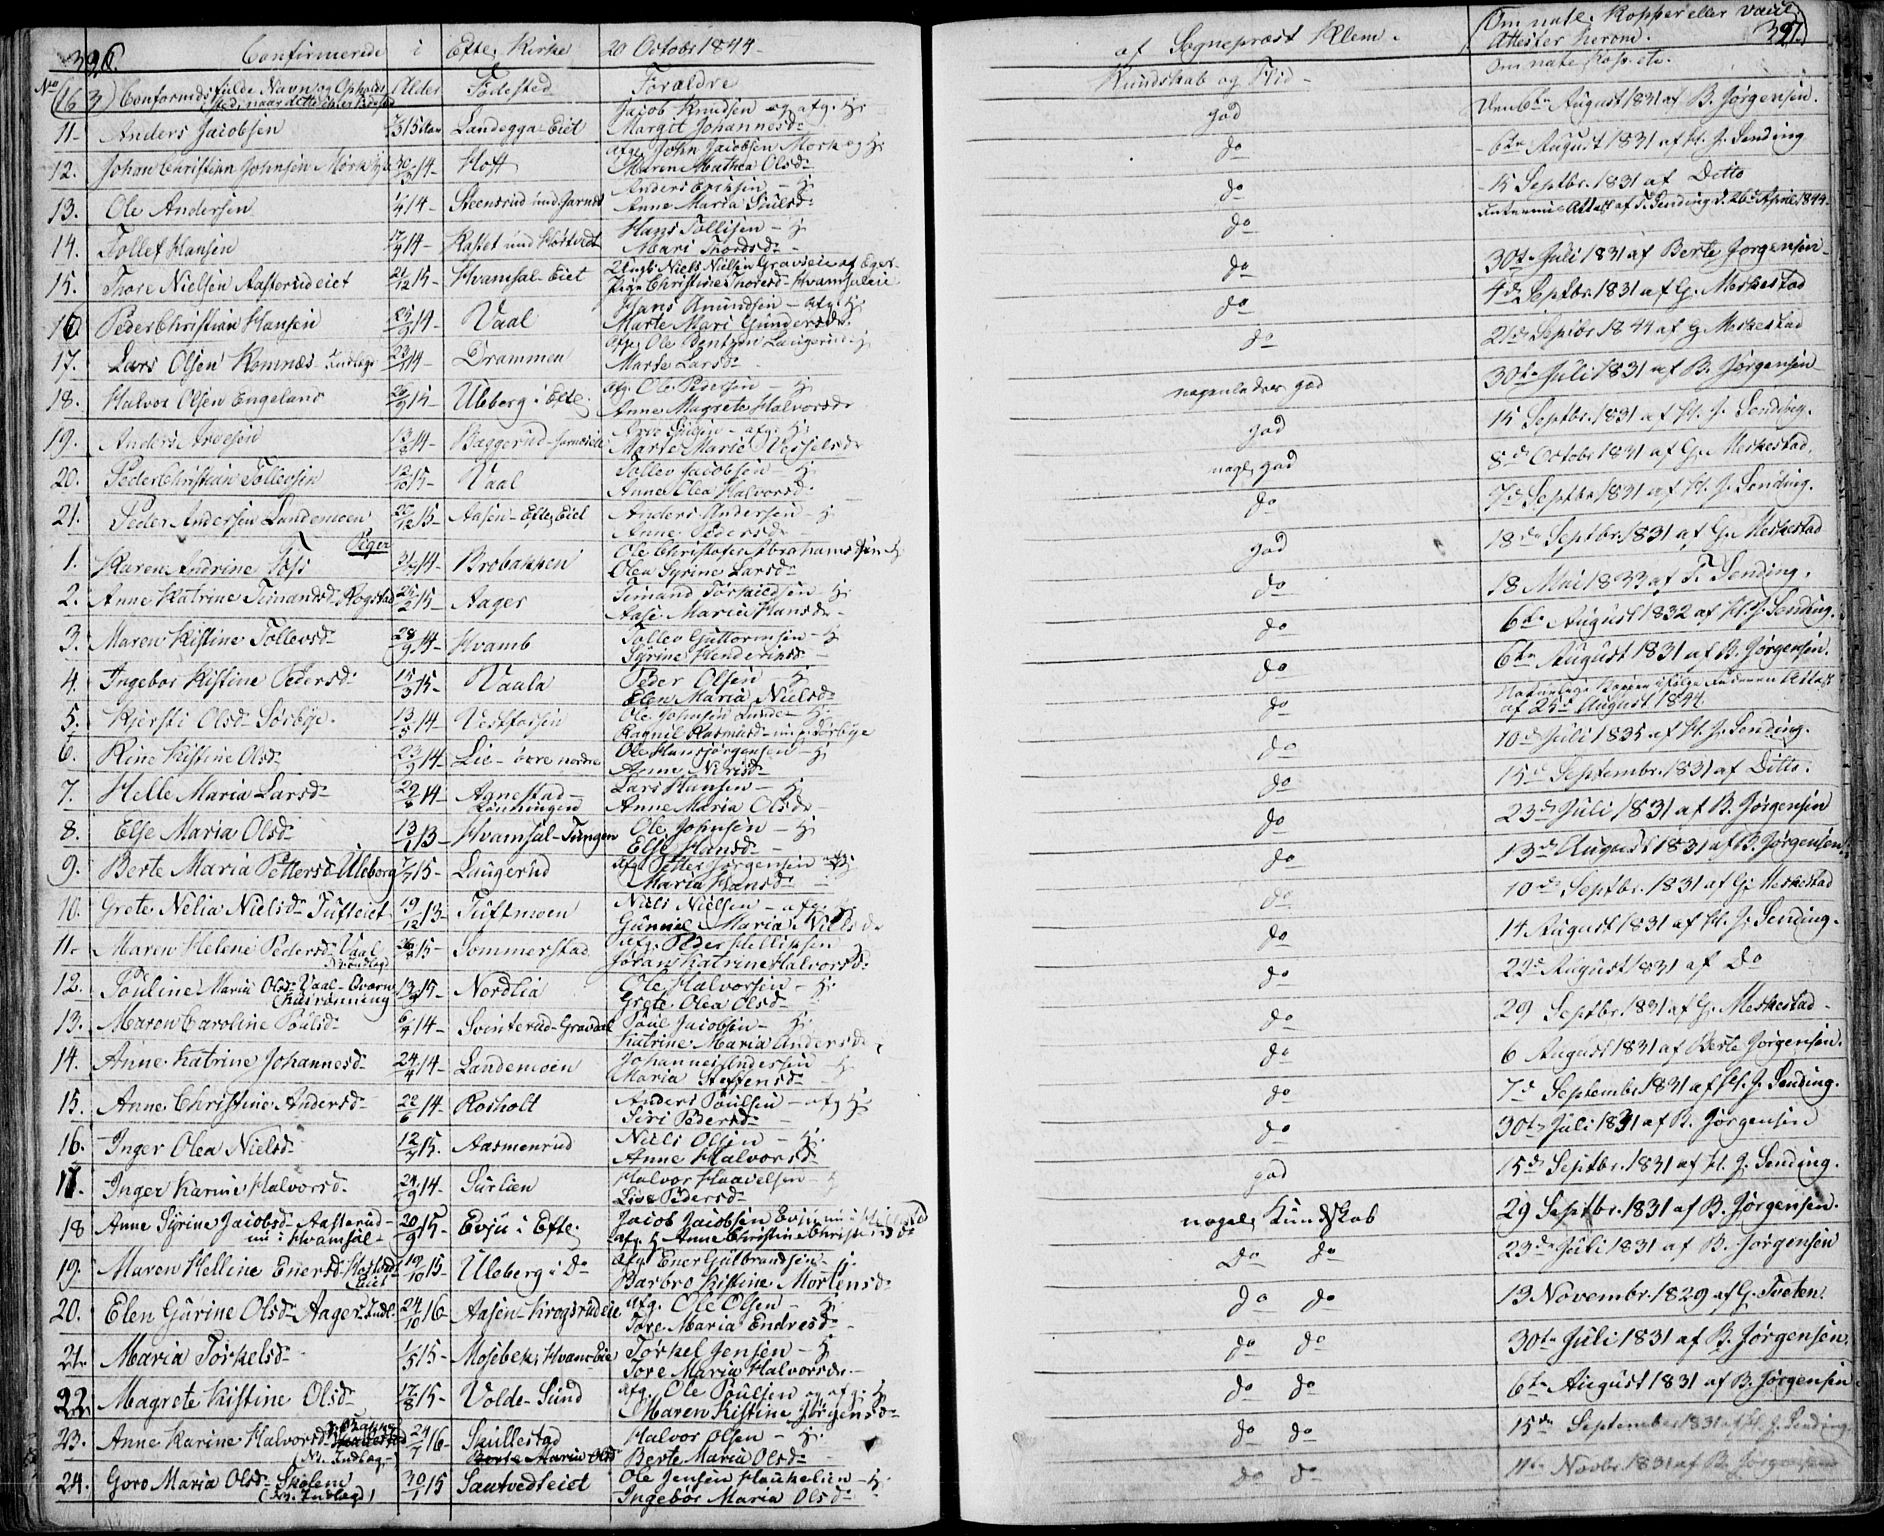 396.
Confirmerede i Efte. Kirke 20 October 1844
af Sognepræst Klem.
Om nate. Kopper eller Vacci.
Attester herom.
397.
No (163) Confirmeds fulde Navn og Opholds Sted, naar dette ei er Fødested
Alder
Fødested
Forældre
Kundskab og Flid
Om nate Kop. etc.
11. Anders Jacobsen 15 Landegga-Eiet Jacob Knudsen og afg. H. Margit Johannesd. god Den 6te August 1831 af B. Jørgensen.
12. Johan Christian Johnsen Mørk 14- Hoff afg. John Jacobsen Mørk og H. Maren Mathea Olsd. do 6te August 1831 af H. J. Sending
13. Ole Andersen 1/4 14- Steensrud Anders Ericksen - H. Anne Maria Poulsd. do 15 Septbr. 1831 af Ditto
14. Tollef Hansen 14- Hans Tollefsen - H. Mari Thordsd. do Attest af T. Sending d. 26de April 1844
15. Thore Nielsen Aasterudeiet 21/12 15- Hvamsal-Eiet Ungk. Niels Nielsen Gravdeie af Eger. Pige Christine Thoresd. Hvamsaleie do 30te Juli 1831 af Berte Jørgensen
16. Peder Christian Hansen 14- Vaal Hans Amundsen - afg. H. Marte Mari Gundersd. do 4de Septbr. 1831 af G. Meskestad
17. Lars Olsen Komnæs Indlagt 14- Drammen afg. Ole Bentzen Laugerud H. Marte Larsd. do 21de Septbr. 1844 af G. Meskestad
18. Halvor Olsen Engeland 26/9 14- Uleberg i Efte. afg. Ole Pedersen - H. Anne Magrete Halvorsd. nogenledes god 30te Juli 1831 af B. Jørgensen
19. Anders Arvesen 14- Baggerud - Arve - afg. H. Marte Marie Vesselsd. god 15 Septbr. 1831 af H. J. Sending.
20. Peder Christian Tollevsen 12/10 15- Vaal Tollev Jacobsen H. Anne Olea Halvorsd. nogl. god 8de Octobr 1831 af G. Meskestad,
21. Peder Andersen Landemoen 12 15- Aasen-Efte. Eiet Anders Andersen - H. Anne Pedersd. do 7de Septbr. 1831 af H. J. Sending.
Piger
1. Karen Andrine Foss 14- Brobakken Ole Christofer Abrahamsen H. Olea Syrine Larsd. god 18de Septbr. 1831 af G. Meskestad
2. Anne Katrine Timandsd. Rogstad 15- Aager Timand Torkildsen H. Aase Maria Hansd. do 18 Mai 1833 af T. Sending.
3. Maren Kistine Tollevsd. 28/9 14- Hvamb Tollev Guttormsen - H. Syrine Henderiksd. do 6te August 1832 af H. J. Sending.
4. Ingebor Kistine Pedersd. 15/3 15- Vaala Peder Olsen H. Elen Maria Nielsd. do 6te August 1831 af B. Jørgensen.
5. Kjersti Olsd. Sørbye. 13/5 14- Vestfossen Ole Johnsen Lunde - H. Ragnil Rasmusd. - Sørbye do Naturlige Kopper ifølge Attest af 25de August 1844.
6. Rine Kistine Olsd. 23/9 14- Lie - øvre nordre Ole Hansjørgensen - H. Anne Nirisd. do 10de Juli 1835 af H. J. Sending.
7. Helle Maria Larsd. 14- Agnestad Rønningen Lars Hansen - H. Anne Maria Olsd. do 15d Septembr. 1831 af Ditto.
8. Else Maria Olsd. 13- Hvamsal-Tungen Ole Johnsen - H. Else Hansd. do 23de Juli 1831 af B. Jørgensen
9. Berte Maria Pettersd. Uleborg 15- Laugerud afg. Petter Jørgensen - H. Maria Hansd. do 13de August 1831 af B. Jørgensen.
10. Grete Nelia Nielsd. Tufteiet 19/12 13- Tuftmoen Niels Nielsen - afg. H. Gunnil Maria Nielsd. do 10de Septbr. 1831 af G. Meskestad
11. Maren Helene Pedersd. Vaal Indlagt 15- Sommerstad afg. Peder Hellissen Joran Katrine Halvorsd. do 14 August 1831 af H. J. Sending.
12. Pouline Maria Olsd. Vaal-Qværn (Husrønning) 15- Nordlia Ole Halvorsen - H. Grete Olea Olsd. do 22de August 1831 af Do
13. Maren Caroline Poulsd. 14- Svinterud-Gravdal Poul Jacobsen - H. Katrine Maria Andersd. do 29 Septbr. 1831 af G. Meskestad -
14. Anne Katrine Johannesd. 24/4 14- Landemoen Johannes Andersen Maria Steffensd. do 6 August 1831 af Berte Jørgensen.
15. Anne Christine Andersd. 22/6 14- Rosholt Anders Poulsen - afg. H. Siri Pedersd. do 7de September 1831 af H. J. Sending.
16. Inger Olea Nielsd. 12/7 15. Aasmenrud Niels Olsen - H. Anne Halvorsd. do 30te Juli 1831 af B. Jørgensen
17. Inger Karine Halvorsd. 24/9 14- Surlien Halvor Haavelsen - H Live Pedersd. god 15de Septbr. 1831 af H. J. Sending.
18 Anne Syrine Jacobsd. Aasterud - nu i Hvamsal- 20/9 15- Evju i Efte. Jacob Jacobsen Evju nu i afg. H. Anne Christine nogel. Kundskab 29 Septbr. 1831 af B. Jørgensen.
19. Maren Helline Enersd. Eiet 19/10 15- Uleberg i Do afg. Ener Gulbrandsen - Barbro Kistine Mortensd. Do do 23de Juli 1831 af B. Jørgensen
20. Elen Gurine Olsd. Aager Indl. 24/10 16- Aasen-Krogsrudeie afg. Ole Olsen - H. Tore Maria Endresd. do do 13 Novembr. 1829 af G. Tveten.
21. Maria Torkelsd. 15- Mosebek, Hvams-Eie Torkel Jensen - H. Tore Maria Halvorsd. do do 30te Juli 1831 af B. Jørgensen
22. Magrete Kistine Olsd. 17/8 15- Volde-Sund afg. Ole Poulsen og afg. H. Maren Kistine Jørgensd. do do 6te August 1831 af B. Jørgensen
23. Anne Karine Halvorsd. (No. Indlag.) 16- Skullestad Halvor Olsen - H. Berte Maria Olsd. do do 15de September 1831 af H. J. Sending
24. Goro Maria Olsd. Skolem (No. Indlagt) 30/1 15 Sautvedteiet Ole Jensen Haukelien - H. Ingebor Maria Olsd. do do Novbr. 1831 af B. Jørgensen